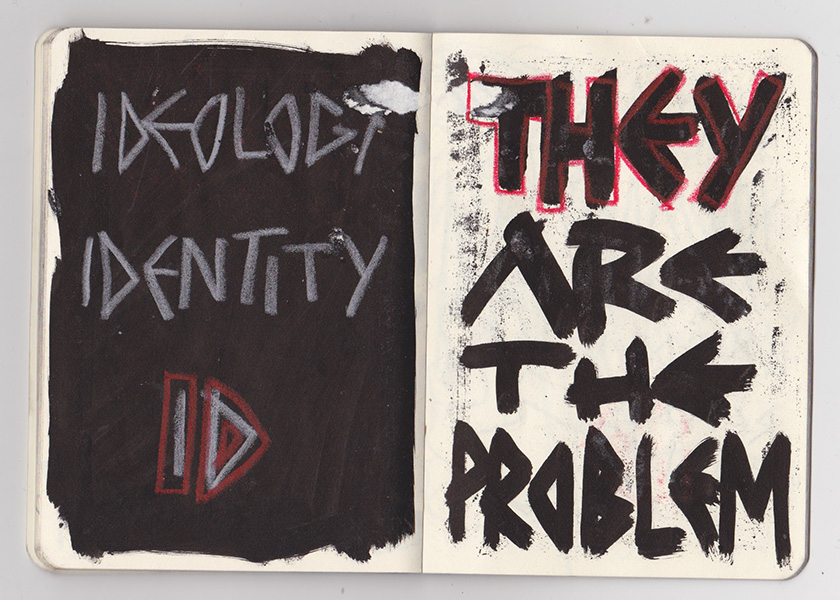 IDEOLOGY
IDENTITY
ID
THEY
ARE
THE
PROBLEM